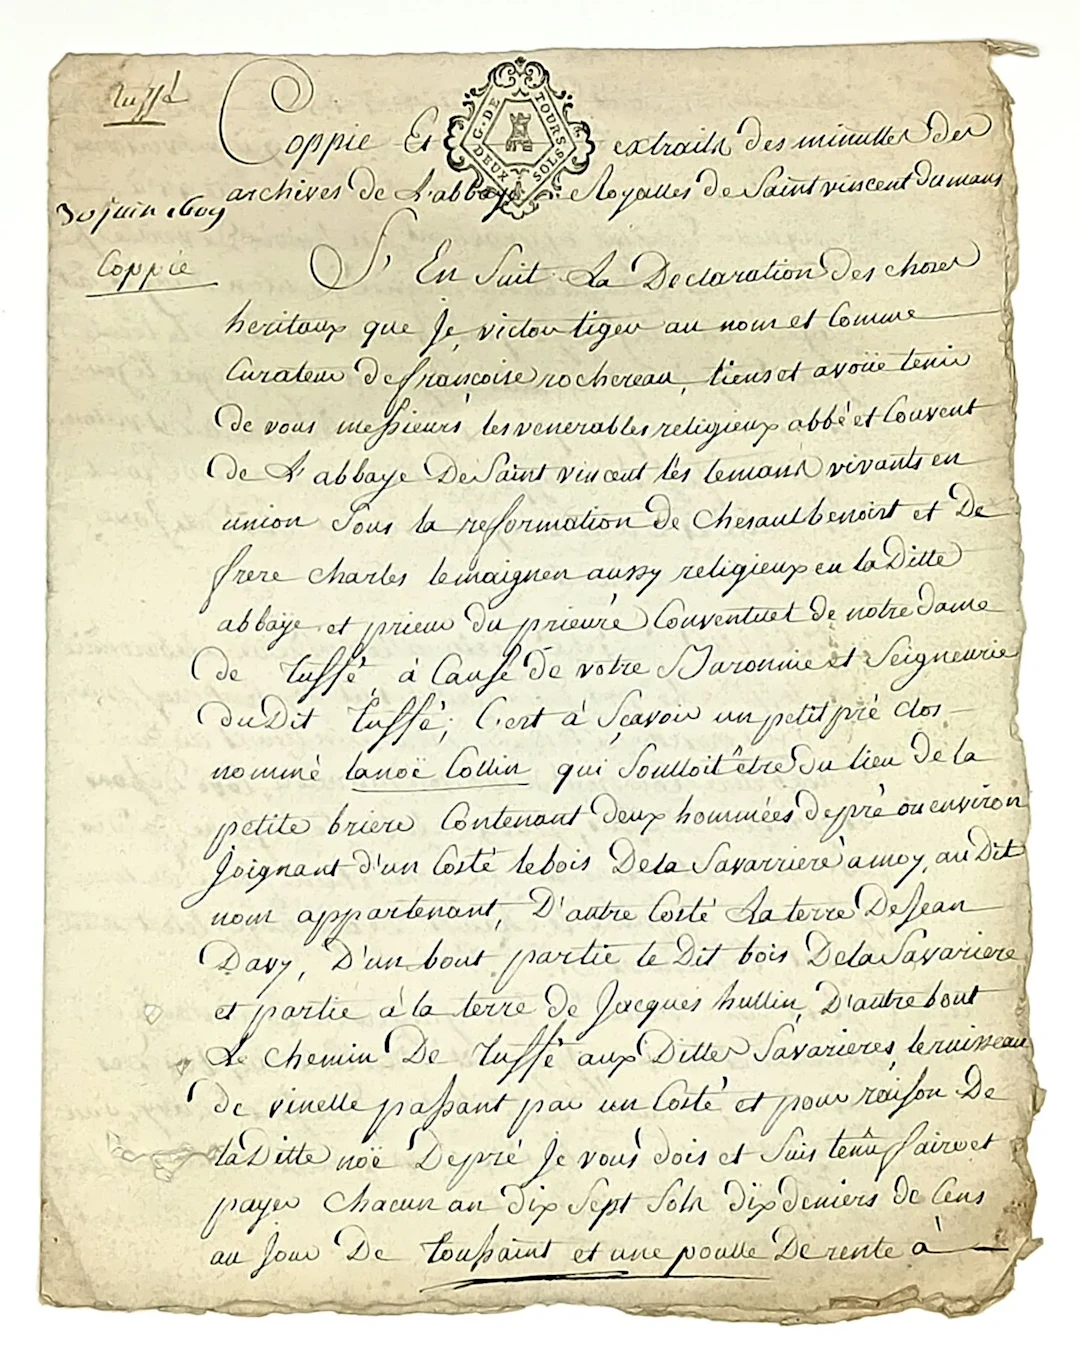 tuffé
G. DE TOURS
DEUX SOLS
Coppie Et extraits des minuttes des
archives de L'abbaye Royalles de Saint vincent du mans
30 juin 1609
Coppie
S'En Suit La Declaration des choses
heritaux que Je, victor tiger au nom et Comme
Curateur de françoise rochereau, tiens et avoüe tenir
de vous messieurs les venerables religieux abbé et Couvent
de L'abbaye De Saint vincent lès lemans vivants en
union sous la reformation de chesaulbenoist et De
frere charles lemaignen aussy religieux en la Ditte
abbaye et prieur du prieuré Conventuel de notre dame
de tuffé, à Cause de votre Baronnie et Seigneurie
du Dit tuffé; C'est à Sçavoir un petit pré clos
nommé la noë Collin qui Soulloit être du lieu de la
petite briere Contenant deux hommées de pré ou environ
Joignant d'un Costé le bois De la Savarriere à moy, au Dit
nom appartenant, D'autre Costé La terre De Jean
Davy, D'un bout partie le Dit bois De la Savariere
et partie à la terre de Jacques hullin, D'autre bout
Le chemin De tuffé aux Dittes Savarieres, le ruisseau
de vinelle passant par un Costé et pour raison De
la Ditte noë De pré Je vous dois et Suis tenû faire et
payer chacun an dix Sept Sols dix deniers de Cens
au Jour De toussaint et une poulle De rente à